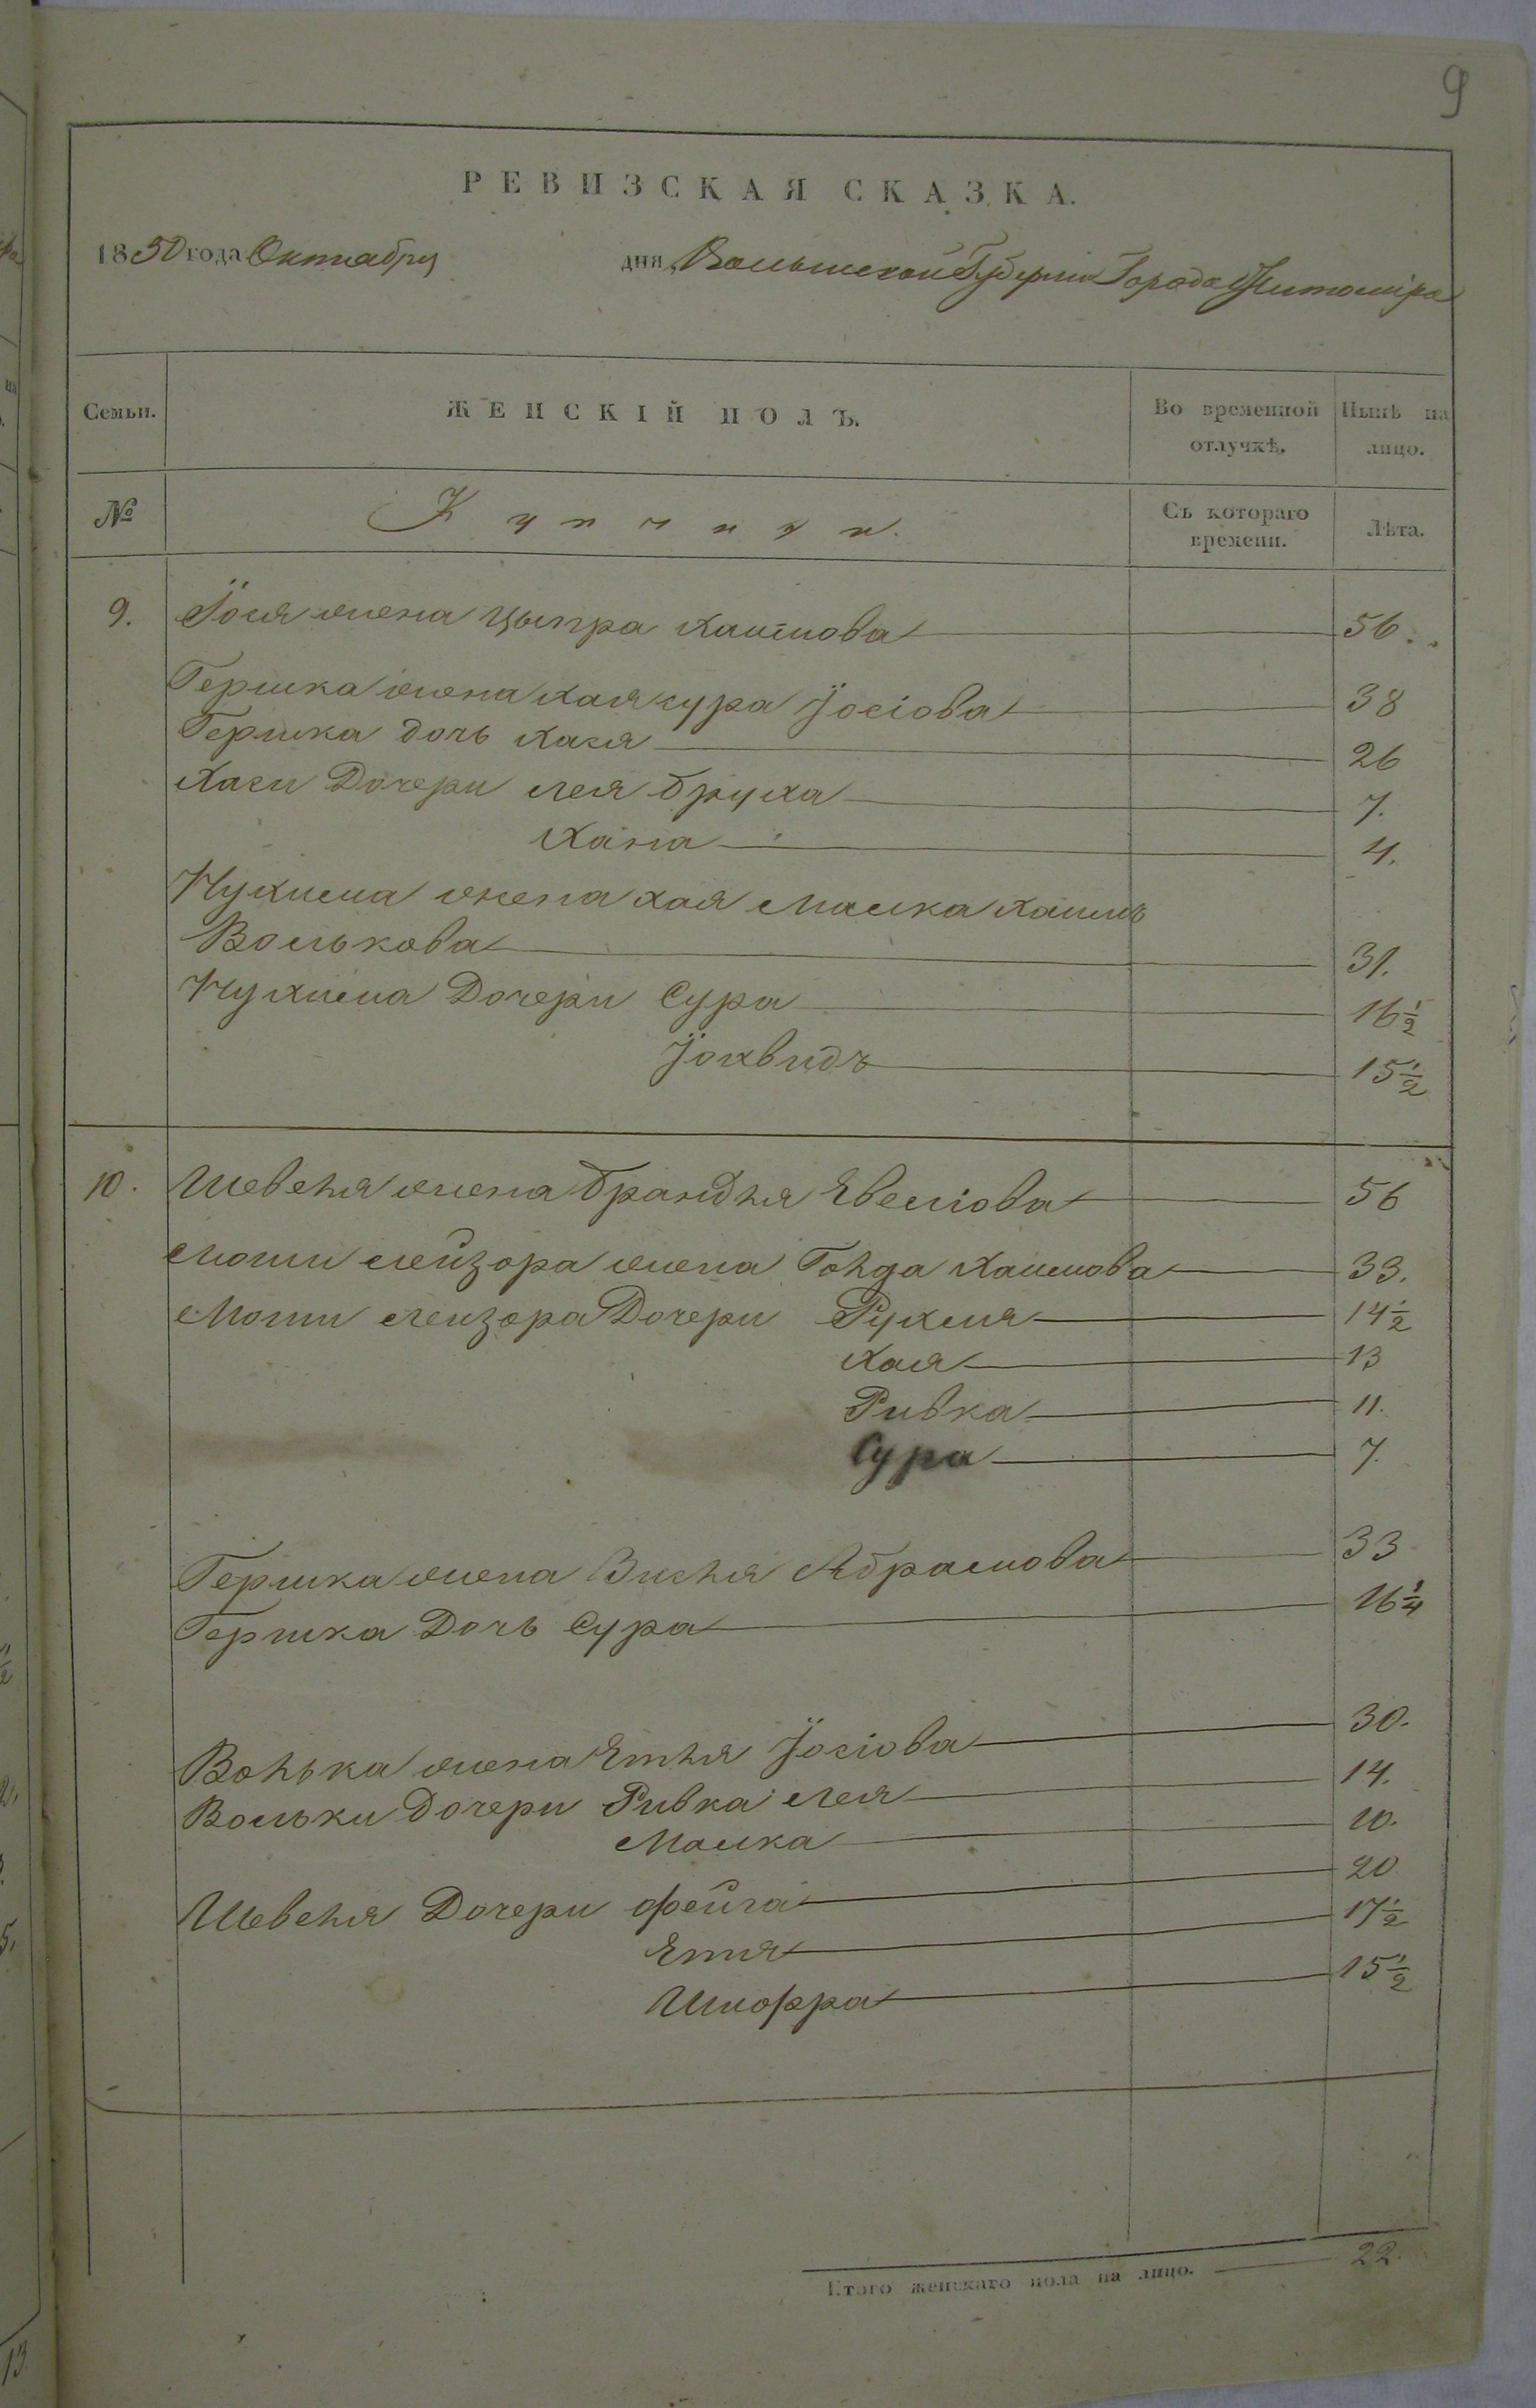 9
РЕВИЗСКАЯ СКАЗКА.
1850 года Октября дня, Волынской Губернии Города Житомира
Семьи. ЖЕНСКІЙ ПОЛЪ. Во временной отлучкѣ. Нынѣ на лицо.
№ Купчихи. Съ котораго времени. Лѣта.
9. Іося жена Цыпра Хаимова 56
Гершка жена Хая сура Іосіова 38
Гершка дочь Хася 26
Хаси Дочери лея бруха 7.
Хана 4.
Нухима жена хая малка хаимъ
Волькова 31.
Нухима Дочери Сура 16½
Іохвидъ 15½
10. Шевеля жена брандля Явеліова 56
Мошилейзора жена Голда Хаимова 33.
Мошилейзора Дочери Рухля 14½
Хая 13
Ривка 11.
Сура 7.
Гершка жена Висля Абрамова 33
Гершка Дочь Сура 16¼
Волька жена Этля Іосіова 30.
Вольки Дочери Ривка лея 14.
Малка 10.
Шевеля Дочери фейга 20
Этля 17½
Шифра 15½
Итого женскаго пола на лицо. 22.